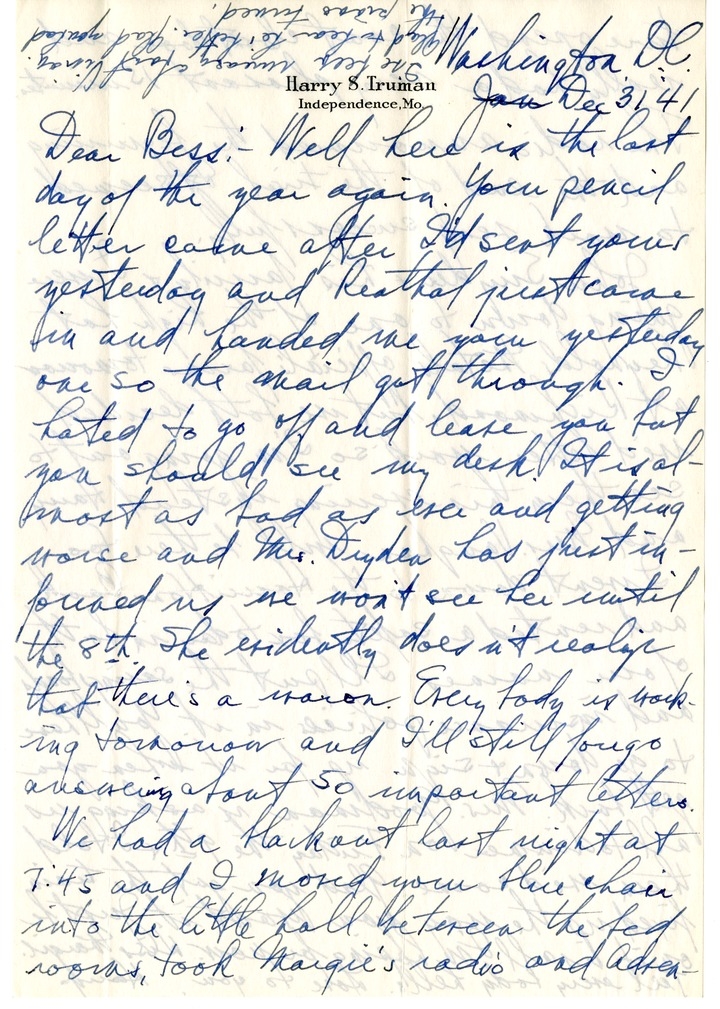 Washington, D.C.
Harry S. Truman
Independence, Mo.
Jan Dec 31, 41
Dear Bess:- Well here is the last
day of the year again. Your pencil
letter came after I'd sent yours
yesterday and Reathal just came
in and handed me your yesterday
one so the mail got through. I
hated to go off and leave you but
you should see my desk. It is al-
most as bad as ever and getting
worse and Mrs. Dryden has just in-
formed us we won't see her until
the 8th. She evidently doesn't realize
that there's a war on. Everybody is work-
ing tomorrow and I'll still forgo
answering about 50 important letters.
We had a blackout last night at
7:45 and I moved your blue chair
into the little hall between the bed
rooms, took Margie's radio and Adven-
the piano tuned.
Glad to hear it. Glad you had